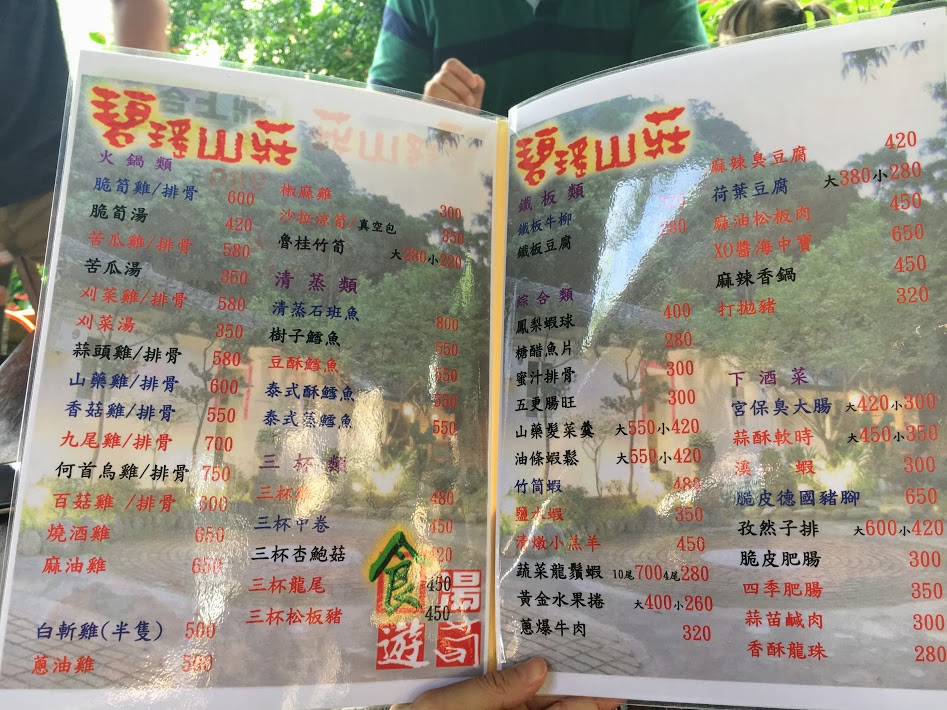 碧瑤山莊
火鍋類
脆筍雞/排骨 600
脆筍湯 420
苦瓜雞/排骨 580
苦瓜湯 350
刈菜雞/排骨 580
刈菜湯 350
蒜頭雞/排骨 580
山藥雞/排骨 600
香菇雞/排骨 550
九尾雞/排骨 700
何首烏雞/排骨 750
百菇雞/排骨 600
燒酒雞 650
麻油雞 650
白斬雞(半隻) 500
蔥油雞 500
椒麻雞 300
沙拉涼筍/真空包 350
魯桂竹筍 大280小220
清蒸類
清蒸石班魚 800
樹子鱈魚 550
豆酥鱈魚 550
泰式酥鱈魚 550
泰式蒸鱈魚 550
三杯類
三杯 480
三杯中卷 450
三杯杏鮑菇
三杯龍尾 450
三杯松板豬 450
食
遊
碧瑤山莊
鐵板類
鐵板牛柳
鐵板豆腐 280
綜合類
鳳梨蝦球 400
糖醋魚片 280
蜜汁排骨 300
五更腸旺 300
山藥髮菜羹 大550小420
油條蝦鬆 大550小420
竹筒蝦 480
鹽水蝦 350
清燉小羔羊 450
蔬菜龍鬚蝦 10尾700 4尾280
黃金水果捲 大400小260
蔥爆牛肉 320
麻辣臭豆腐 420
荷葉豆腐 大380小280
麻油松板肉 450
XO醬海中寶 650
麻辣香鍋 450
打拋豬 320
下酒菜
宮保臭大腸 大420小300
蒜酥軟時 大450小350
溪蝦 300
脆皮德國豬腳 650
孜然子排 大600小420
脆皮肥腸 300
四季肥腸 350
蒜苗鹹肉 300
香酥龍珠 280